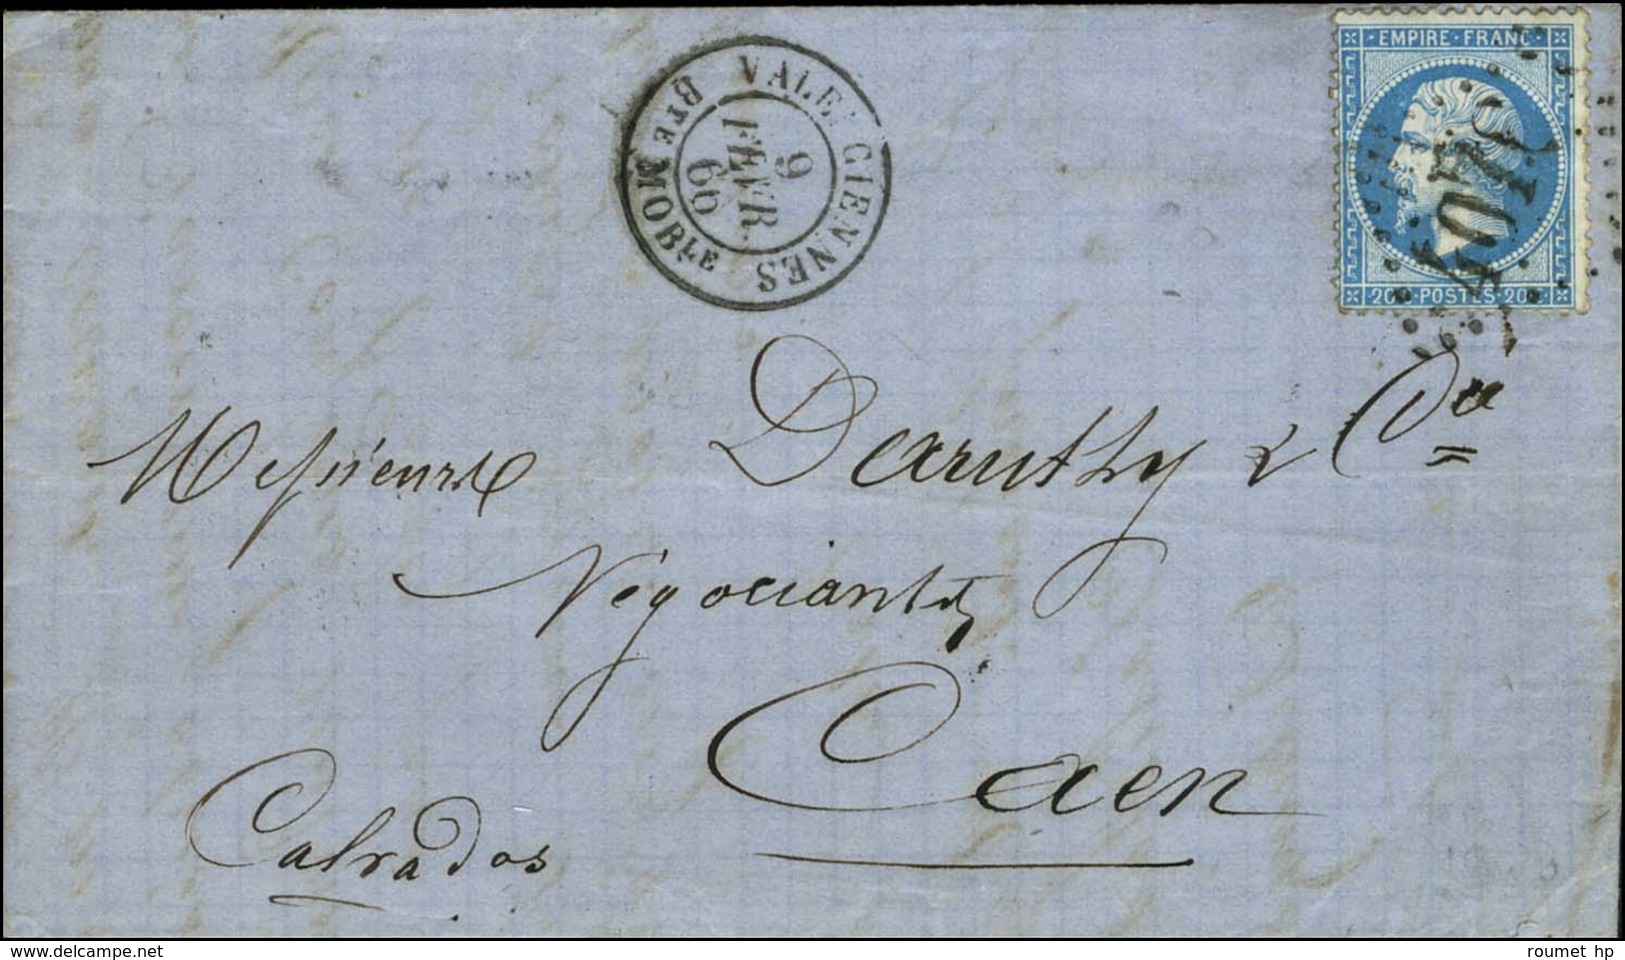 VALE CIENNES
Bᵀᴱ MOBᴵᴸᴱ
9
FEVR.
66
EMPIRE · FRANC
4074
20 C · POSTES · 20 C
Messieurs Daruthy & Cie
Négociants
Caen
Calvados
delcampe.net
roumet hp